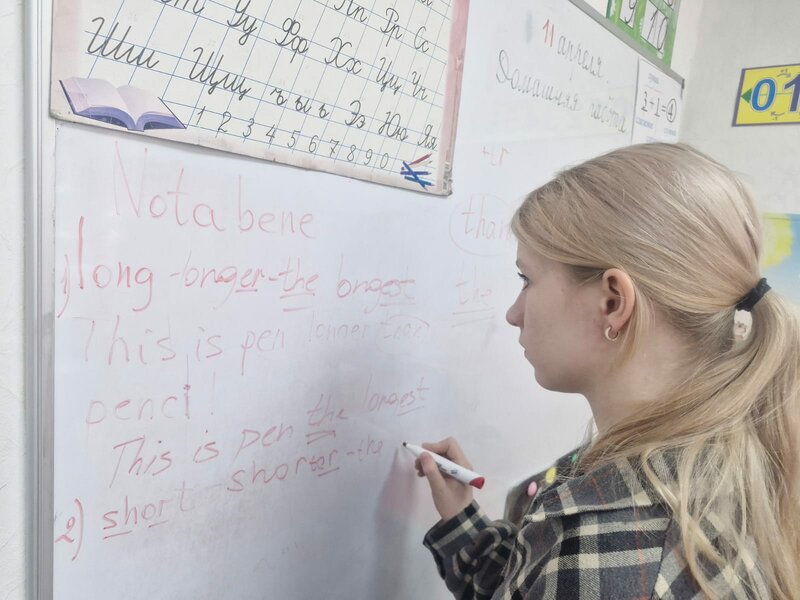 Пп Рр Сс
Уу Фф Хх Цц Чч
Шш Щщ ъ ы ь Ээ Юю Яя
1 2 3 4 5 6 7 8 9 0
11 апреля.
Домашняя работа
9 10
2+1=4
01
Nota bene
+er
than
1) long - longer - the longest
the
This is pen longer than
pencil
This is pen the longest
2) short - shorter - the